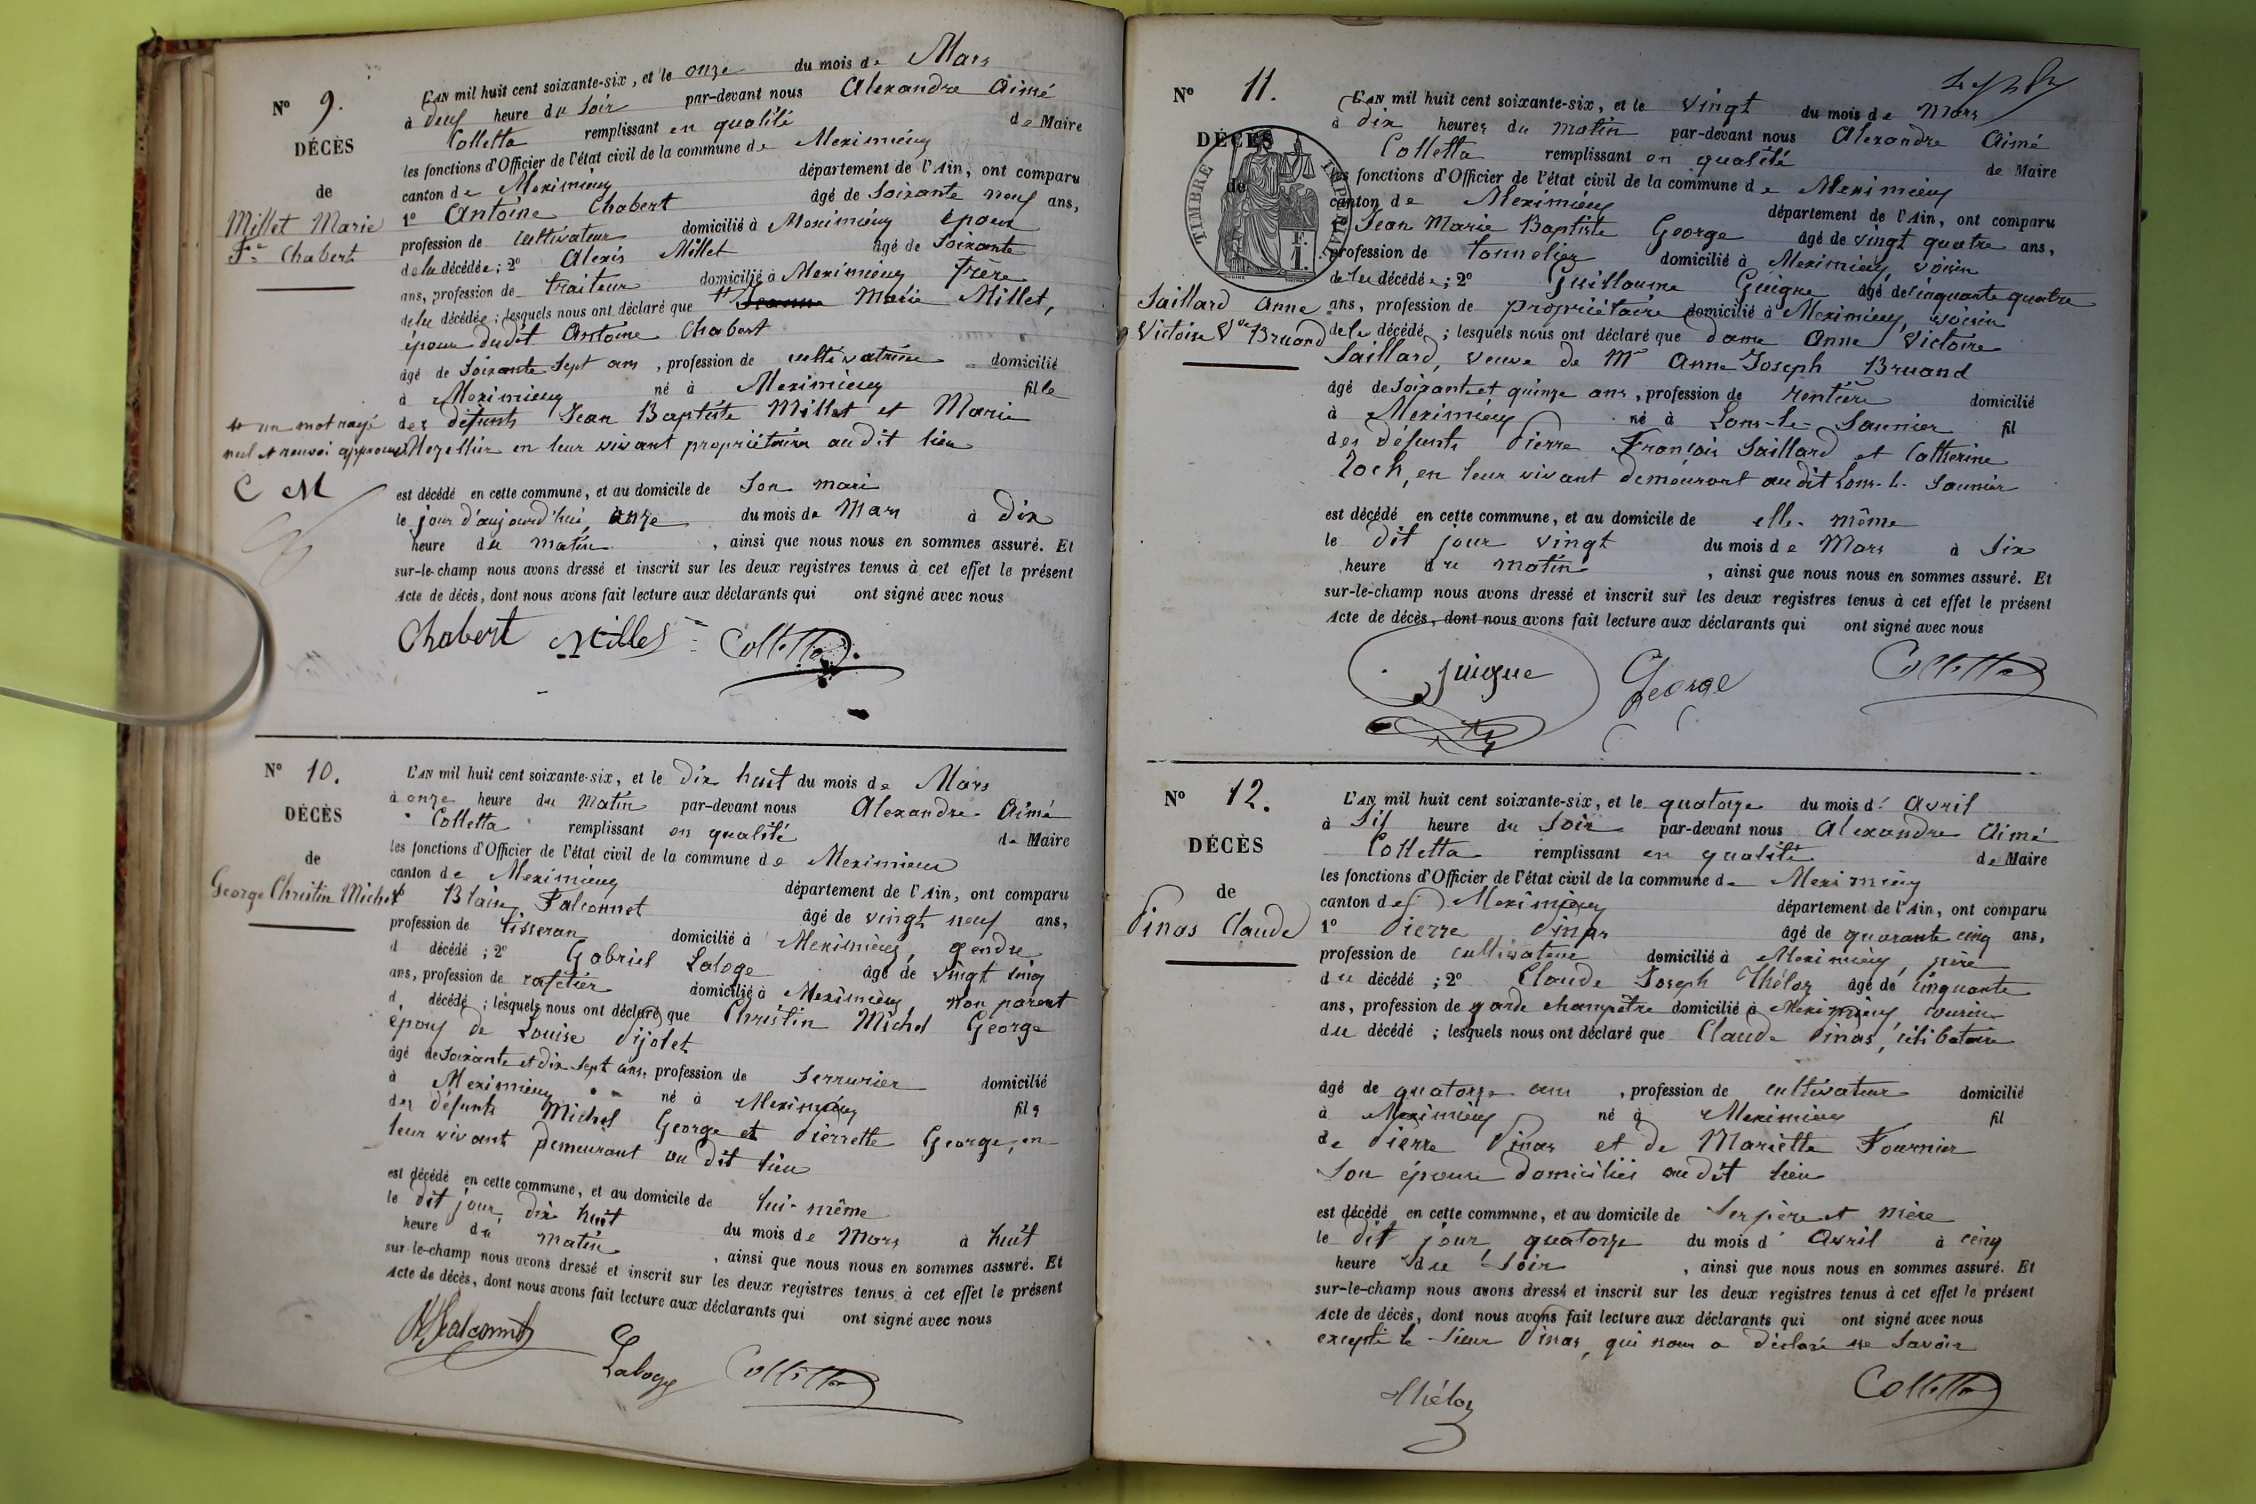 N° 9.
DÉCÈS
de
Millet Marie
Fe Chabert
L'AN mil huit cent soixante-six, et le onze du mois de Mars
à deux heure du Soir par-devant nous Alexandre Aimé
Colletta remplissant en qualité de Maire
les fonctions d'Officier de l'état civil de la commune de Meximieux
canton de Meximieux département de l'Ain, ont comparu
1° Antoine Chabert âgé de Soixante neuf ans,
profession de Cultivateur domicilié à Meximieux époux
de la décédée; 2° Alexis Millet âgé de Soixante
ans, profession de traiteur domicilié à Meximieux frère
de la décédée; lesquels nous ont déclaré que Jeanne Marie Millet,
épouse dudit Antoine Chabert
âgé de Soixante Sept ans, profession de cultivatrice domicilié
à Meximieux né à Meximieux fille
des défunts Jean Baptiste Millet et Marie
en leur vivant propriétaires au dit lieu
un mot rayé
nul et renvoi approuvés
C M
est décédé en cette commune, et au domicile de Son mari
le jour d'aujourd'hui onze du mois de Mars à Dix
heure du matin, ainsi que nous nous en sommes assuré. Et
sur-le-champ nous avons dressé et inscrit sur les deux registres tenus à cet effet le présent
Acte de décès, dont nous avons fait lecture aux déclarants qui ont signé avec nous
Chabert Millet Colletta
N° 10.
DÉCÈS
de
George Christin Michel
L'AN mil huit cent soixante-six, et le dix huit du mois de Mars
à onze heure du Matin par-devant nous Alexandre Aimé
Colletta remplissant en qualité de Maire
les fonctions d'Officier de l'état civil de la commune de Meximieux
canton de Meximieux département de l'Ain, ont comparu
1° Blaise Falconnet âgé de vingt neuf ans,
profession de tisseran domicilié à Meximieux, gendre
d décédé; 2° Gabriel Laloge âgé de vingt cinq
ans, profession de cafetier domicilié à Meximieux non parent
d décédé; lesquels nous ont déclaré que Christin Michel George
époux de Louise Pijolet
âgé de soixante et dix sept ans, profession de Serrurier domicilié
à Meximieux né à Meximieux fils
des défunts Michel George et Pierrette George, en
leur vivant demeurant au dit lieu
est décédé en cette commune, et au domicile de lui-même
le dit jour dix huit du mois de Mars à huit
heure du matin, ainsi que nous nous en sommes assuré. Et
sur-le-champ nous avons dressé et inscrit sur les deux registres tenus à cet effet le présent
Acte de décès, dont nous avons fait lecture aux déclarants qui ont signé avec nous
Falconnet Laloge Colletta
N° 11.
DÉCÈS
de
TIMBRE IMPÉRIAL
F. 1.
Saillard Anne
Victoire Vve Bruand
L'AN mil huit cent soixante-six, et le vingt du mois de Mars
à dix heures du matin par-devant nous Alexandre Aimé
Colletta remplissant en qualité de Maire
les fonctions d'Officier de l'état civil de la commune de Meximieux
canton de Meximieux département de l'Ain, ont comparu
1° Jean Marie Baptiste George âgé de vingt quatre ans,
profession de tonnelier domicilié à Meximieux, voisin
de la décédée; 2° Guillaume Guigue âgé de cinquante quatre
ans, profession de propriétaire domicilié à Meximieux, voisin
de la décédé; lesquels nous ont déclaré que dame Anne Victoire
Saillard, veuve de Mr Anne Joseph Bruand
âgé de soixante et quinze ans, profession de rentière domicilié
à Meximieux né à Lons-le-Saunier fil
des défunts Pierre François Saillard et Catherine
Roch, en leur vivant demeurant au dit Lons-l-Saunier
est décédé en cette commune, et au domicile de elle-même
le dit jour vingt du mois de Mars à Six
heure du matin, ainsi que nous nous en sommes assuré. Et
sur-le-champ nous avons dressé et inscrit sur les deux registres tenus à cet effet le présent
Acte de décès, dont nous avons fait lecture aux déclarants qui ont signé avec nous
Guigue George Colletta
N° 12.
DÉCÈS
de
Pinas Claude
L'AN mil huit cent soixante-six, et le quatorze du mois d'Avril
à Six heure du Soir par-devant nous Alexandre Aimé
Colletta remplissant en qualité de Maire
les fonctions d'Officier de l'état civil de la commune de Meximieux
canton de Meximieux département de l'Ain, ont comparu
1° Pierre Pinas âgé de quarante cinq ans,
profession de cultivateur domicilié à Meximieux, père
du décédé; 2° Claude Joseph Théloz âgé de cinquante
ans, profession de garde champêtre domicilié à Meximieux cousin
du décédé; lesquels nous ont déclaré que Claude Pinas, célibataire
âgé de quatorze ans, profession de cultivateur domicilié
à Meximieux né à Meximieux fil
de Pierre Pinas et de Mariette Fournier
son épouse domiciliés au dit lieu
est décédé en cette commune, et au domicile de Ses père et mère
le dit jour quatorze du mois d'Avril à cinq
heure du Soir, ainsi que nous nous en sommes assuré. Et
sur-le-champ nous avons dressé et inscrit sur les deux registres tenus à cet effet le présent
Acte de décès, dont nous avons fait lecture aux déclarants qui ont signé avec nous
excepté le Sieur Pinas, qui nous a déclaré ne savoir
Théloz Colletta